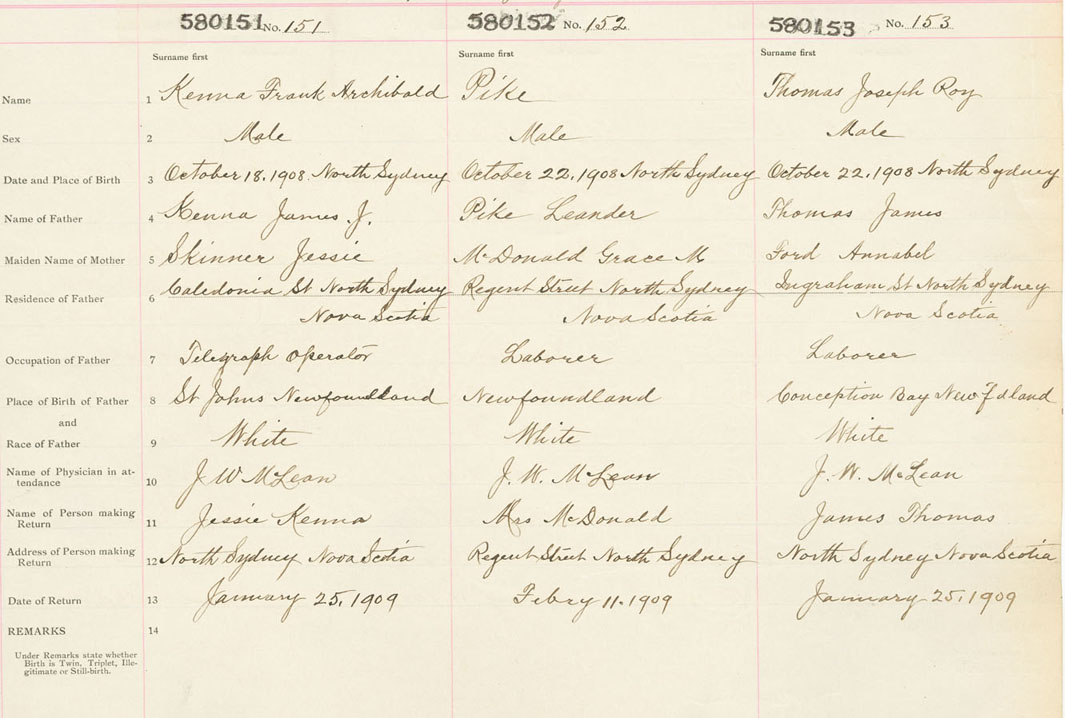 580151 No. 151 580152 No. 152 580153 No. 153
Surname first Surname first Surname first
Name 1 Kenna Frank Archibald Pike Thomas Joseph Roy
Sex 2 Male Male Male
Date and Place of Birth 3 October 18, 1908 North Sydney October 22, 1908 North Sydney October 22, 1908 North Sydney
Name of Father 4 Kenna James J. Pike Leander Thomas James
Maiden Name of Mother 5 Skinner Jessie McDonald Grace M Ford Annabel
Residence of Father 6 Caledonia St North Sydney Regent Street North Sydney Ingraham St North Sydney
Nova Scotia Nova Scotia Nova Scotia
Occupation of Father 7 Telegraph Operator Laborer Laborer
Place of Birth of Father 8 St Johns Newfoundland Newfoundland Conception Bay New Fdland
and
Race of Father 9 White White White
Name of Physician in at-
tendance 10 J W McLean J. W. McLean J. W. McLean
Name of Person making
Return 11 Jessie Kenna Mrs McDonald James Thomas
Address of Person making
Return 12 North Sydney Nova Scotia Regent Street North Sydney North Sydney Nova Scotia
Date of Return 13 January 25, 1909 Febry 11. 1909 January 25, 1909
REMARKS 14
Under Remarks state whether
Birth is Twin, Triplet, Ille-
gitimate or Still-birth.